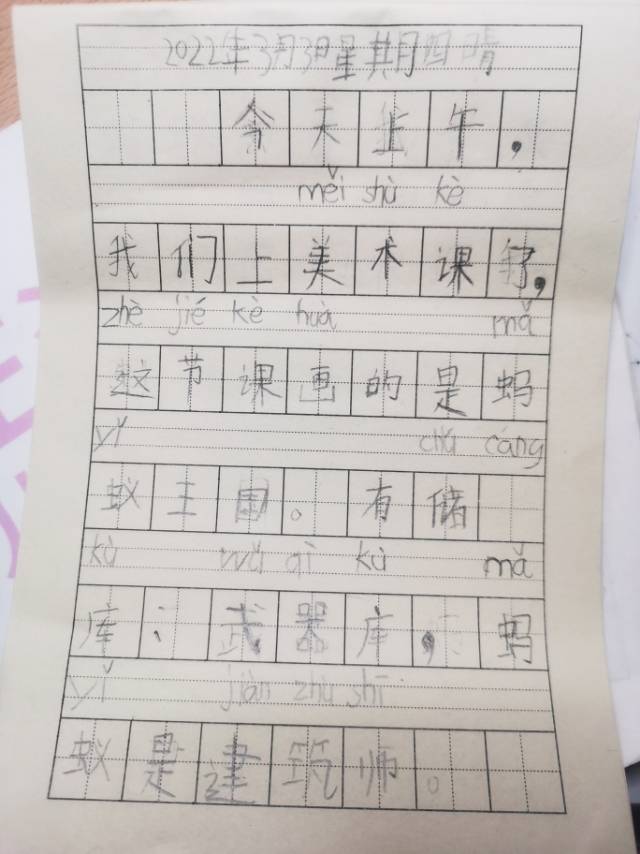 2022年3月3日星期四 晴
今天上午，
měi shù kè
我们上美术课了，
zhè jié kè huà mǎ
这节课画的是蚂
yǐ chǔ cáng
蚁王国。有储
kù wǔ qì kù mǎ
库；武器库，蚂
yǐ jiàn zhù shī
蚁是建筑师。